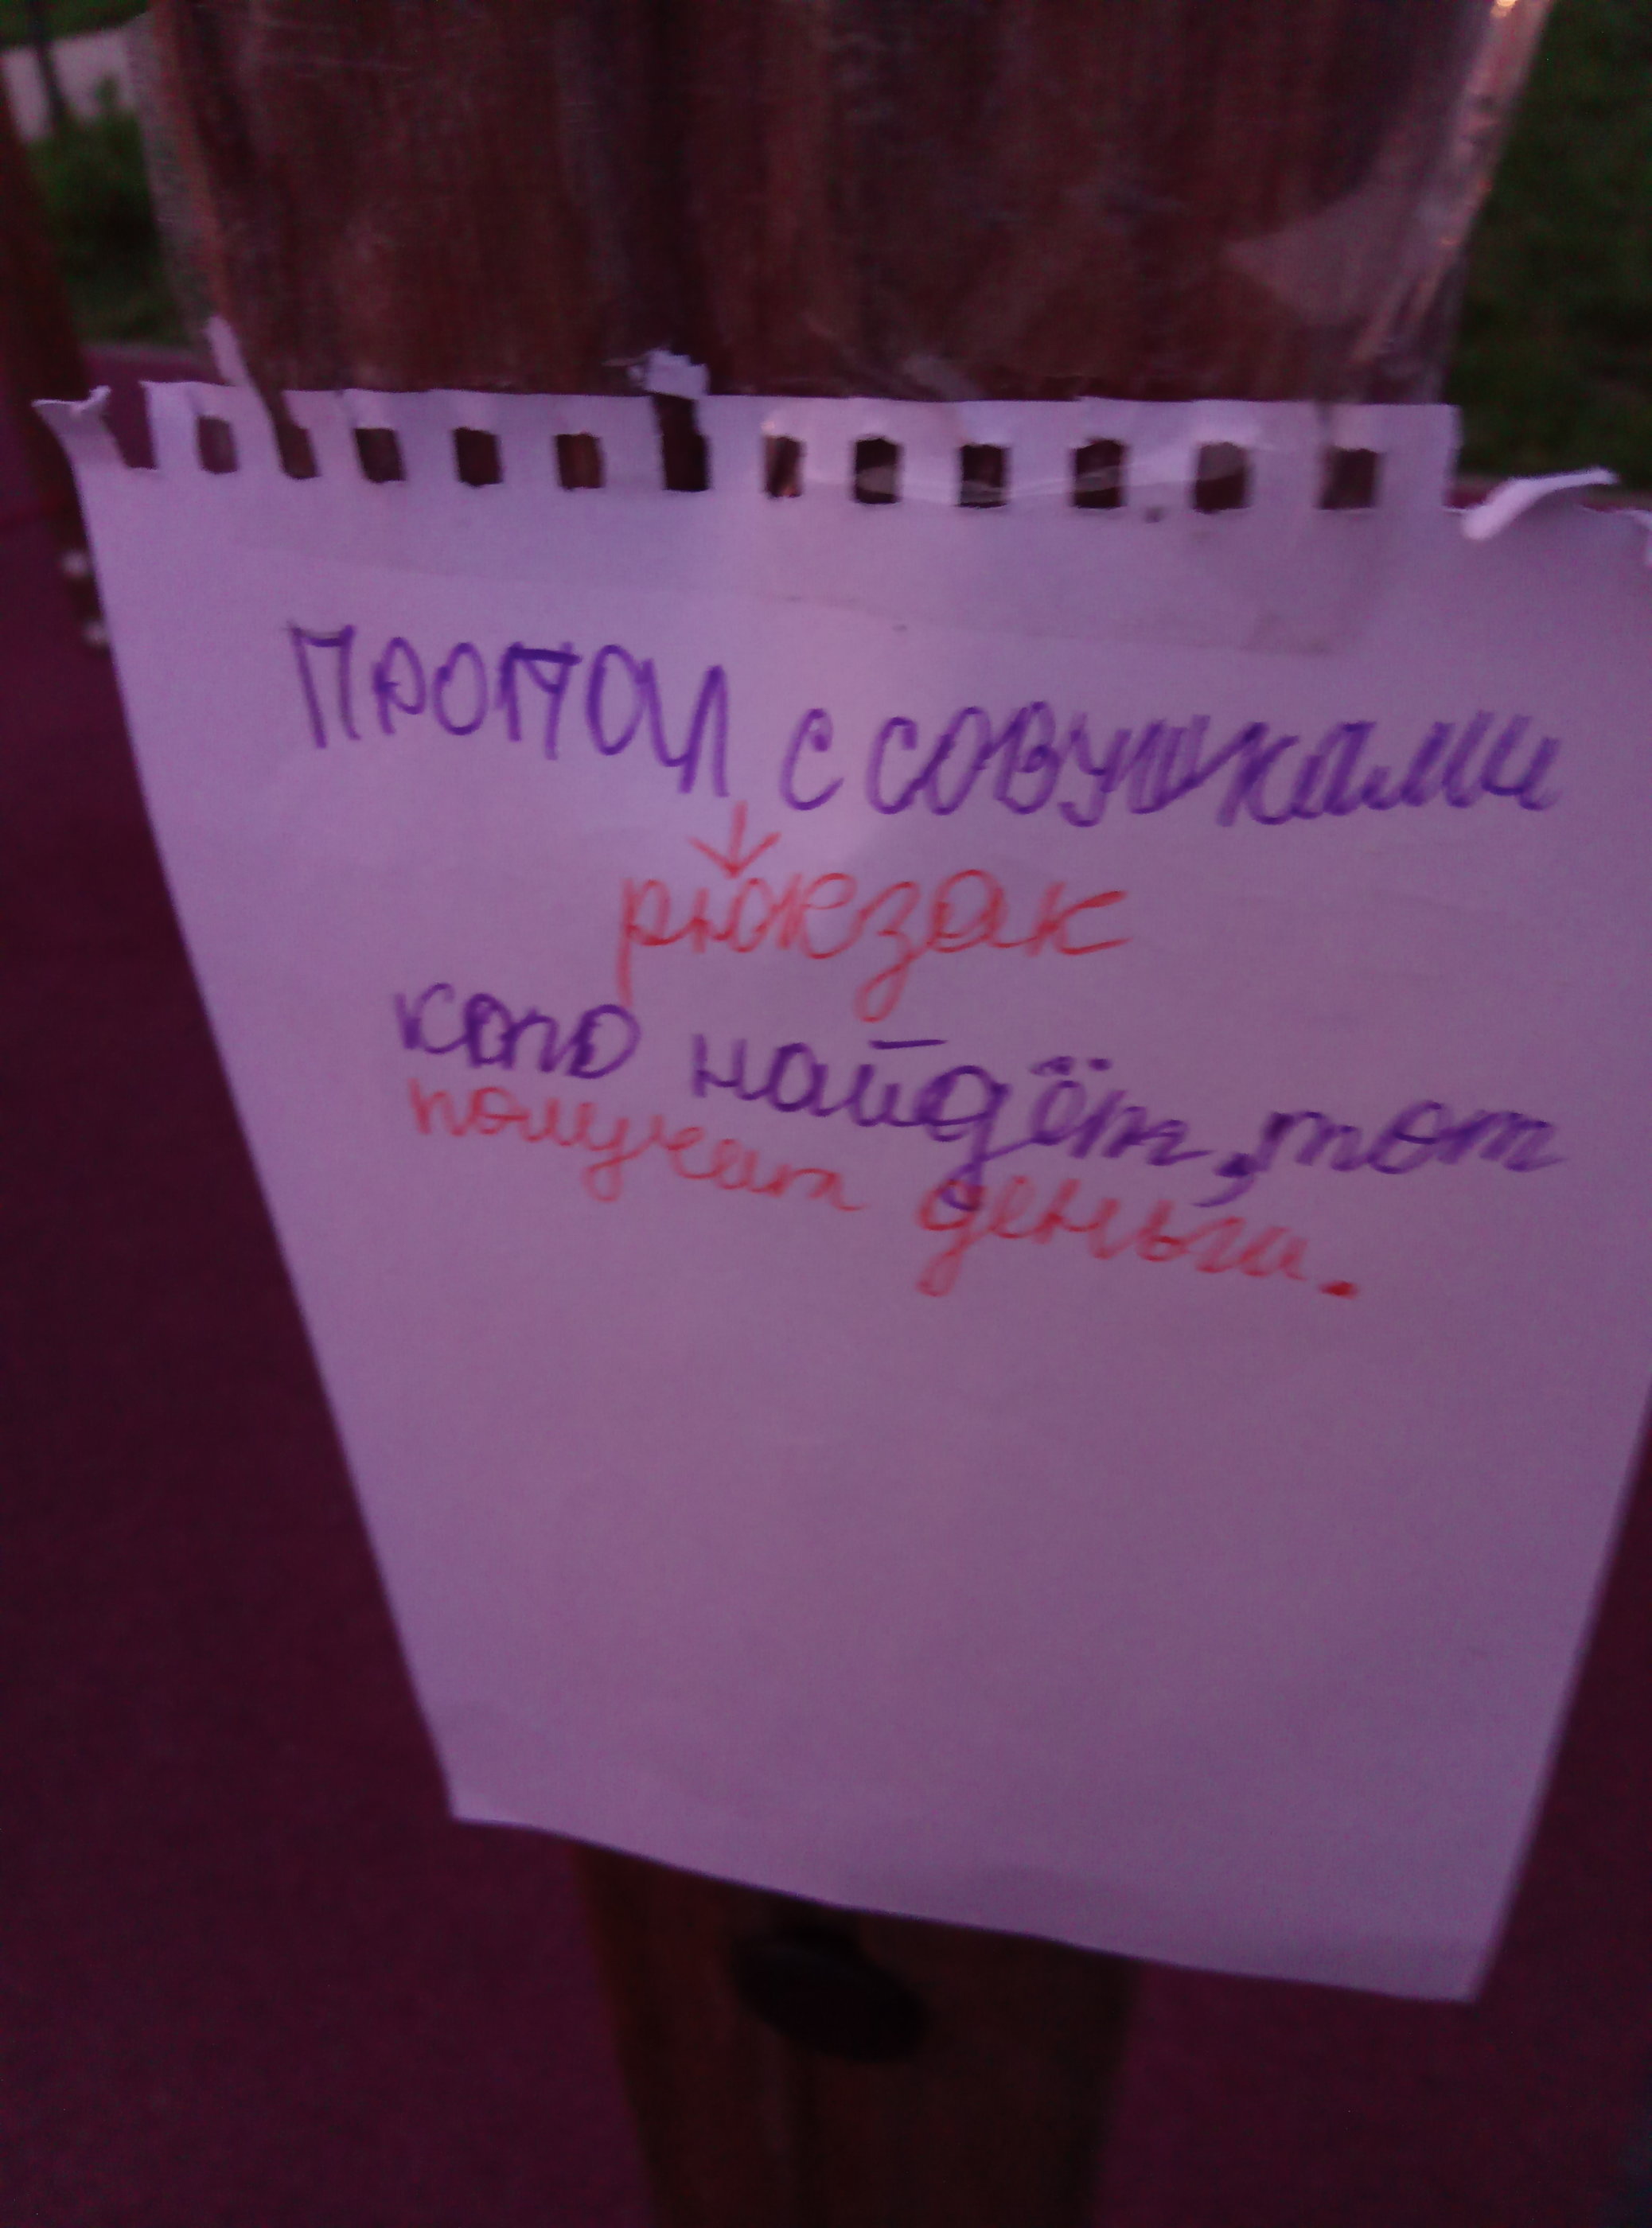 ПРОПАЛ С СОВУШКАМИ
↓
рюкзак
кто найдёт, тот
получит деньги.